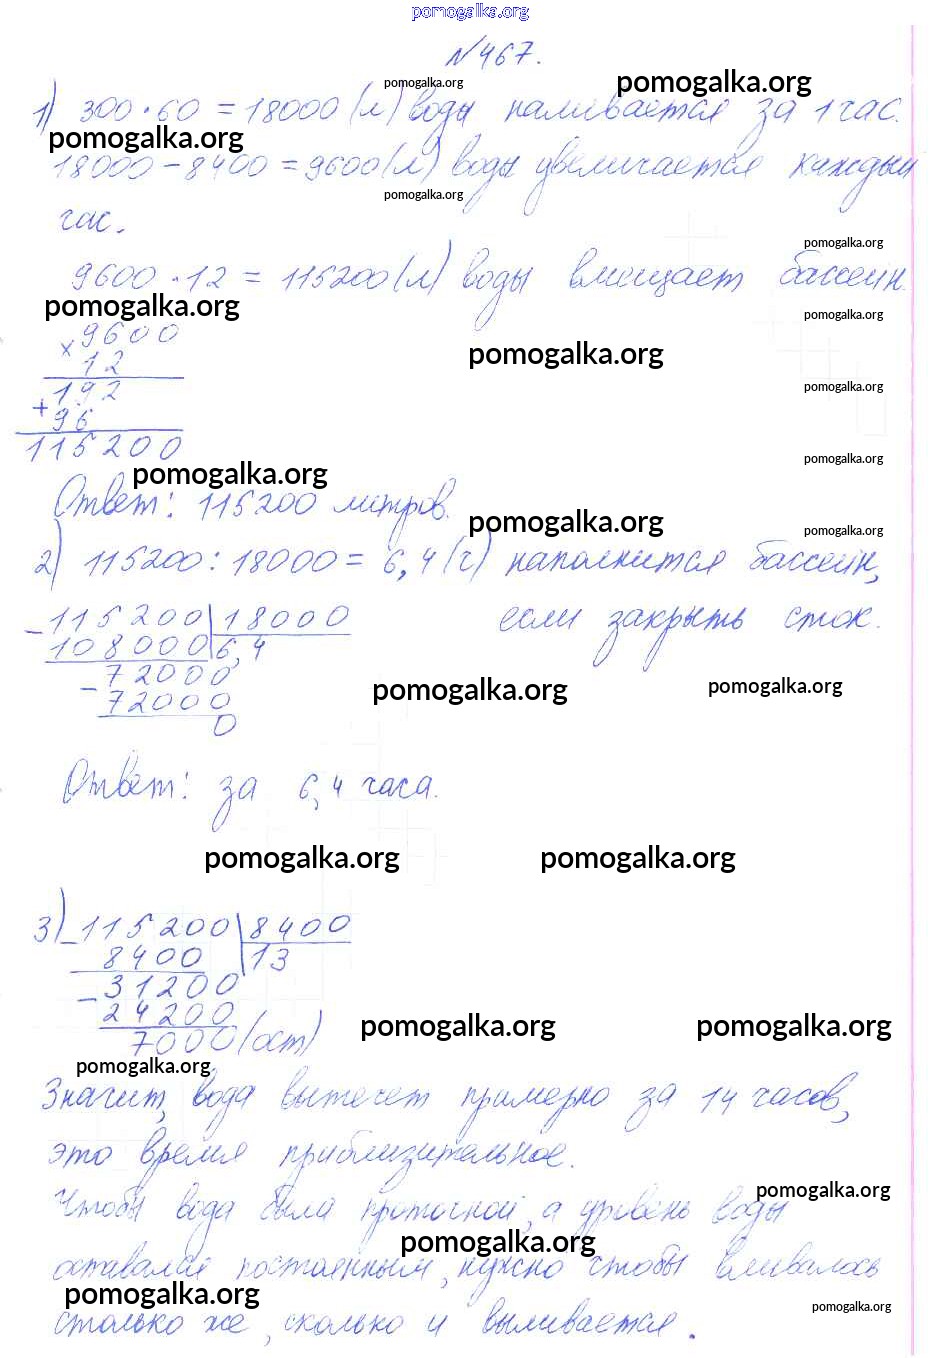 pomogalka.org
№467.
pomogalka.org pomogalka.org
1) 300 · 60 = 18000 (л) воды наливается за 1 час.
pomogalka.org
18000 – 8400 = 9600 (л) воды увеличается каждый
pomogalka.org
час.
pomogalka.org
9600 · 12 = 115200 (л) воды вмещает бассейн.
pomogalka.org pomogalka.org
× 9600
pomogalka.org
12
pomogalka.org
192
+ 96
115200
pomogalka.org
pomogalka.org
Ответ: 115200 литров.
pomogalka.org pomogalka.org
2) 115200 : 18000 = 6,4 (г) наполнится бассейн,
если закрыть сток.
– 115200 | 18000
108000 | 6,4
– 72000
72000
0
pomogalka.org pomogalka.org
Ответ: за 6,4 часа.
pomogalka.org pomogalka.org
3) – 115200 | 8400
8400 | 13
– 31200
24200
7000 (ост)
pomogalka.org pomogalka.org
pomogalka.org
Значит, вода вытечет примерно за 14 часов,
это время приблизительное.
pomogalka.org
Чтобы вода была проточной, а уровень воды
pomogalka.org
оставался постоянным, нужно чтобы вливалось
pomogalka.org pomogalka.org
столько же, сколько и выливается.